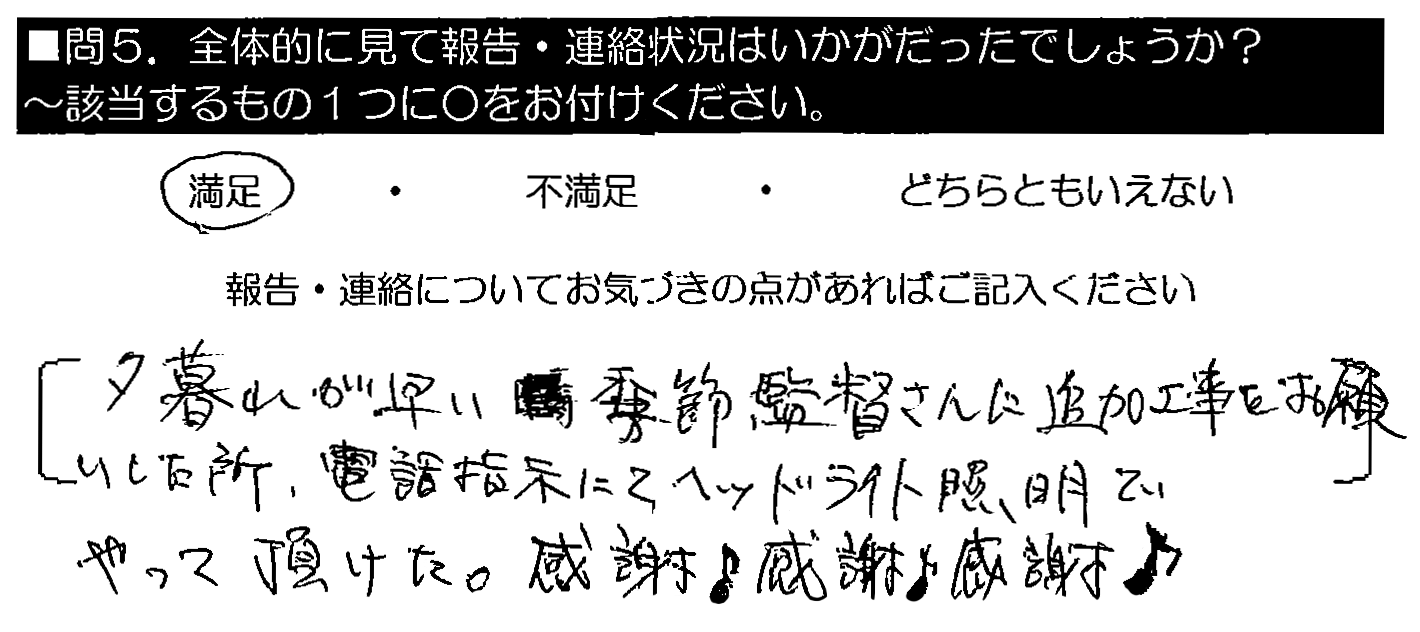 ■問５．全体的に見て報告・連絡状況はいかがだったでしょうか？
～該当するもの１つに○をお付けください。
満足 ・ 不満足 ・ どちらともいえない
報告・連絡についてお気づきの点があればご記入ください
夕暮れが早い季節、監督さんに追加工事をお願
いした所、電話指示にて、ヘッドライト照明で
やって頂けた。感謝♪感謝♪感謝♪